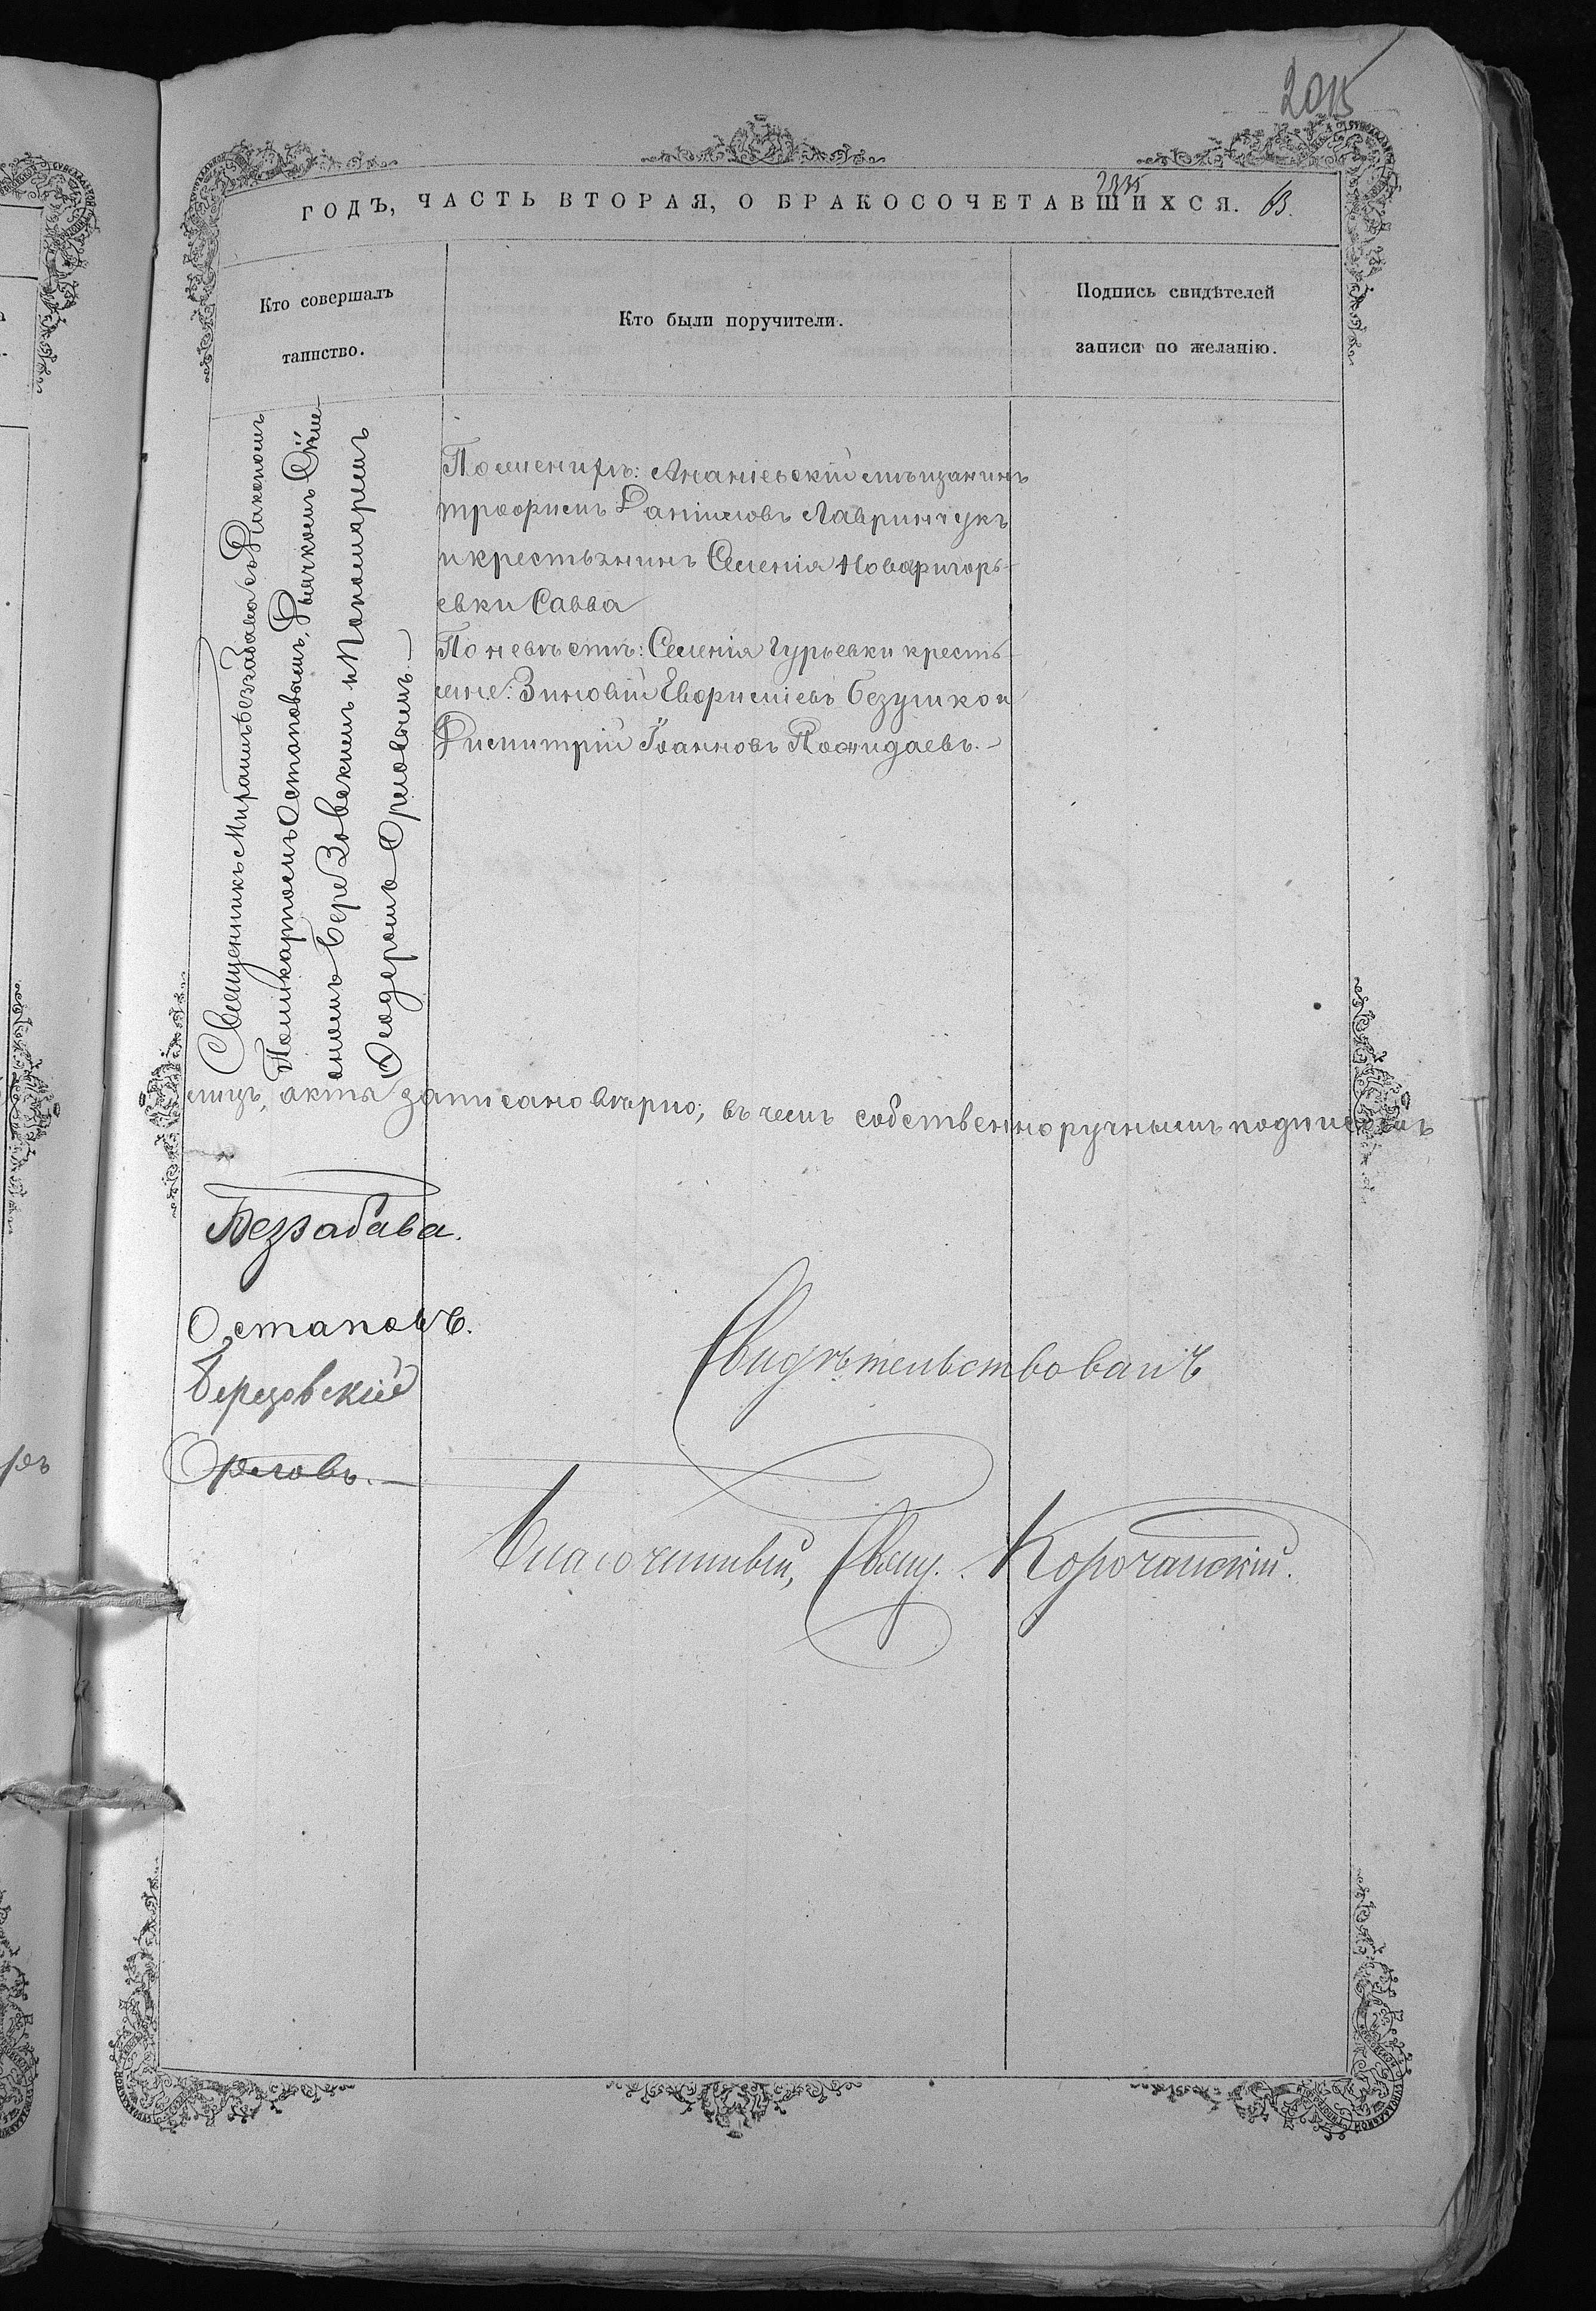 2015
2335
ГОДЪ, ЧАСТЬ ВТОРАЯ, О БРАКОСОЧЕТАВШИХСЯ. 63.
Кто совершалъ
таинство.
Кто были поручители.
Подпись свидѣтелей
записи по желанію.
Священникъ Миратъ Беззабава съ Діакономъ
Поликарпомъ Остаповымъ, Дьячкомъ Сѵме-
ономъ Березовскимъ и Пономаремъ
Ѳеодоромъ Орловымъ
По женихѣ: Ананіевскій мѣщанинъ
Трофимъ Даніиловъ Лавринчукъ
и крестьянинъ Селенія Новогригорь-
евки Савва
По невѣстѣ: Селенія Гурьевки кресть-
яне: Зиновій Евфиміевъ Безушко и
Димитрій Іоанновъ
лицъ, акты записано вѣрно, въ чемъ собственноручнымъ подписомъ
Беззабава.
Остаповъ.
Березовскій
Орловъ.
Свидѣтельствовалъ
Благочинный, Свящ. Корочанскій.